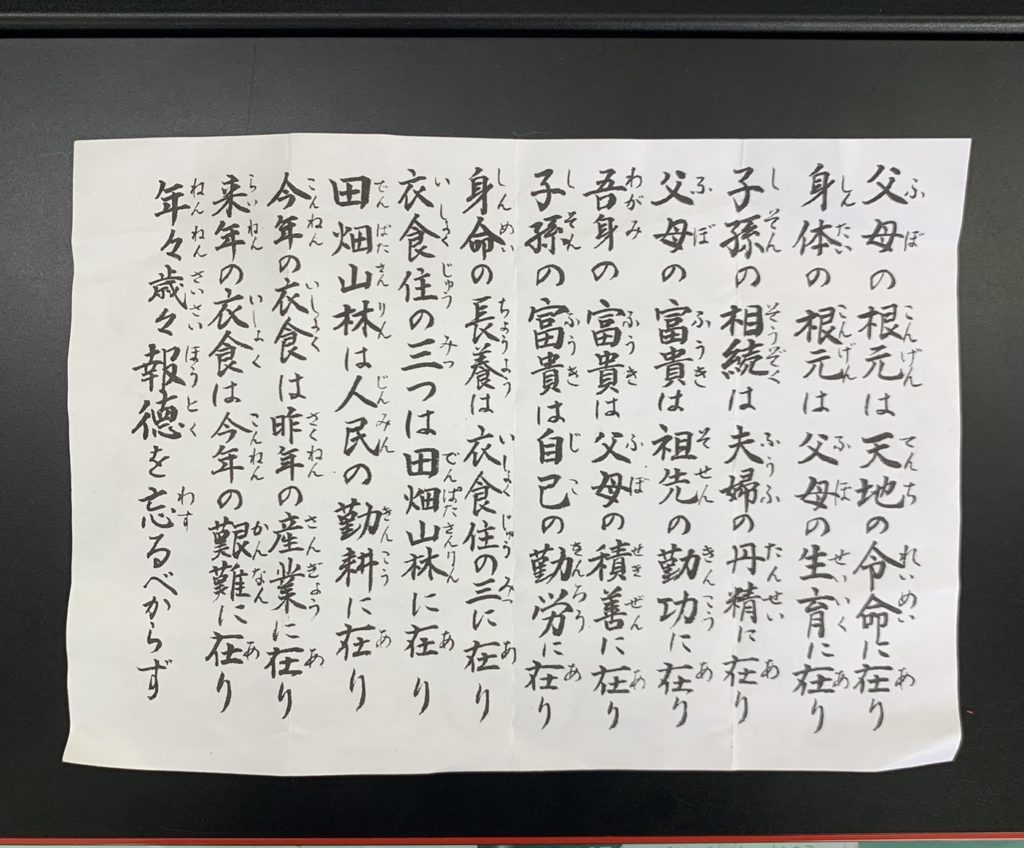 父母の根元は天地の令命に在り
身体の根元は父母の生育に在り
子孫の相続は夫婦の丹精に在り
父母の富貴は祖先の勤功に在り
吾身の富貴は父母の積善に在り
子孫の富貴は自己の勤労に在り
身命の長養は衣食住の三に在り
衣食住の三つは田畑山林に在り
田畑山林は人民の勤耕に在り
今年の衣食は昨年の産業に在り
来年の衣食は今年の艱難に在り
年々歳々報徳を忘るべからず